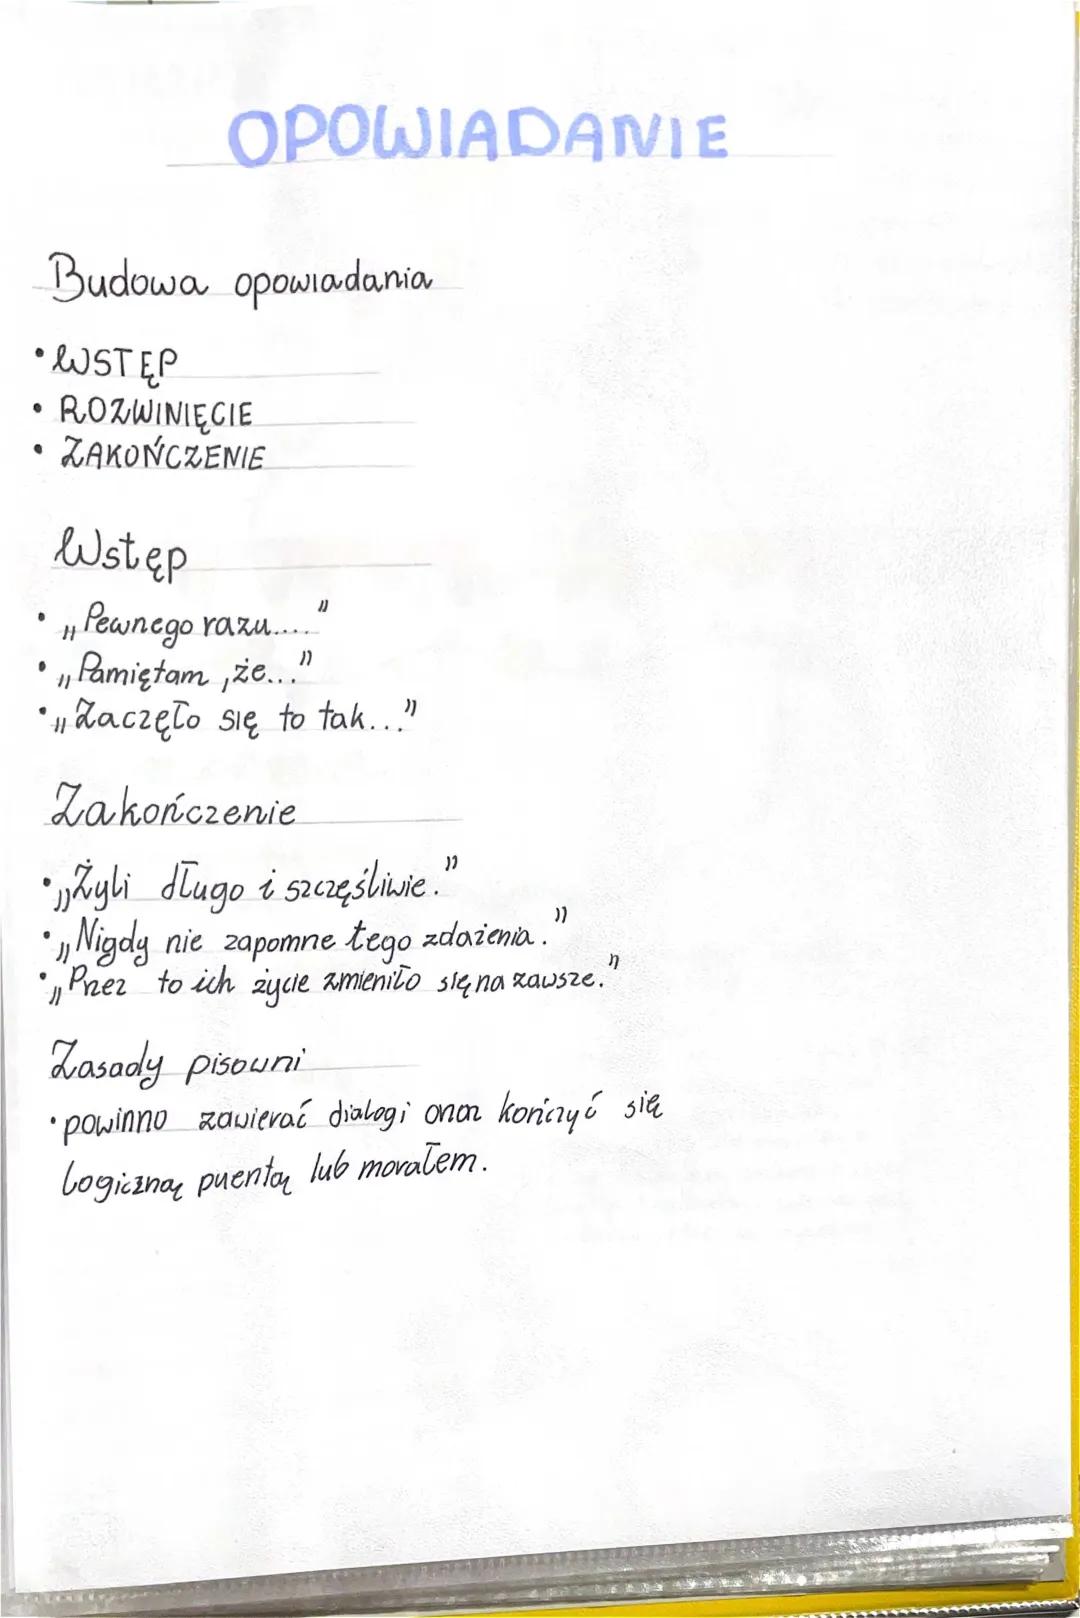 OPOWIADANIE
Budowa opowiadania
• WSTĘP
• ROZWINIĘCIE
• ZAKOŃCZENIE
Wstęp
• „Pewnego razu...."
• „Pamiętam ,że..."
• „Zaczęło się to tak..."
Zakończenie
• „Żyli długo i szczęśliwie."
• „Nigdy nie zapomne tego zdarzenia."
• „Przez to ich życie zmieniło się na zawsze."
Zasady pisowni
• powinno zawierać dialogi oraz kończyć się
logiczną puentą lub morałem.